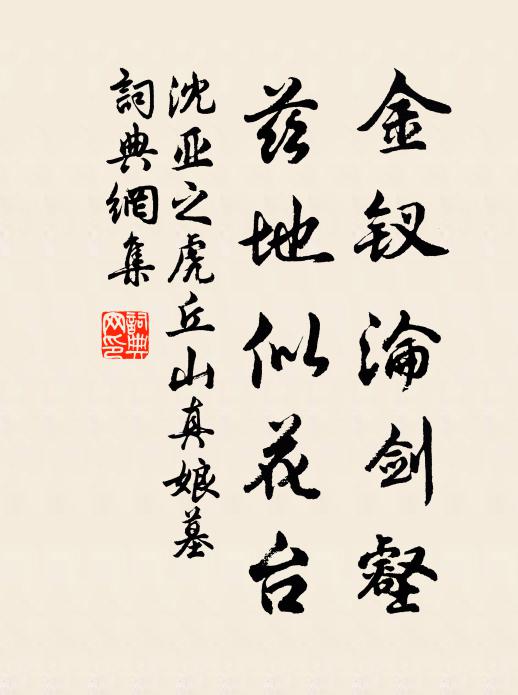 金钗淪剑壑
茲地似花台
沈亚之虎丘山真娘墓
詞典網集
詞典网印